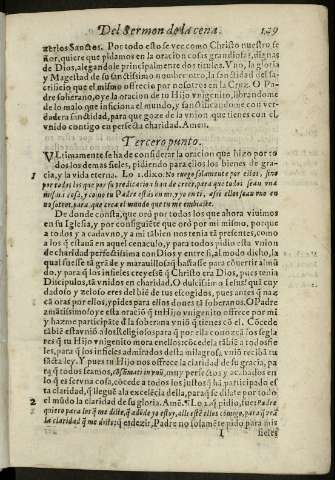 Del Sermon de la cena. 129
zerlos Sanctos. Por todo esto se vee como Christo nuestro se
ñor, quiere que pidamos en la oracion cosas grandiosas, dignas
de Dios, alegandole principalmente dos titulos. Vno, la gloria
y Magestad de su sanctissimo nombre otro, la sanctidad del sa-
crificio que el mismo offrecio por nosotros en la Cruz. O Pa-
dre soberano, oye la oracion de tu Hijo vnigenito, librandome
de lo malo que inficiona el mundo, y sanctificandome con ver-
dadera sanctidad, para que goze de la vnion que tienes con el,
vnido contigo en perfecta charidad. Amen.
Tercero punto.
VLtimamente se ha de considerar la oracion que hizo por to
dos los demas fieles, pidiendo para ellos los bienes de gra-
1 cia, y la vida eterna. Lo 1. dixo. No ruego solamente por ellos, sino
por todos los que por su predicacion han de creer, para que todos sean vna
misma cosa, y como tu Padre estàs en mi, y yo en ti, assi ellos sean vno en
nosotros, para que crea el mundo que tu me embiaste.
De donde consta, que orò por todos los que ahora viuimos
en su Iglesia, y por consiguiête que orò por mi mismo, porque
a todos y a cada vno, y a mi tâbien nos tenia tâ presentes, como
a los q̃ estauã en aquel cenaculo, y para todos pidio esta vniõn
de charidad perfectissima con Dios y entre si, al modo dicho, la
qual fuesse tã grãde y marauillosa q̃ bastasse para cõuertir al mũ
do, y para q̃ los infieles creyessẽ q̃ Christo era Dios, pues tenia
Discipulos, tã vnidos en charidad. O dulcissimo Iesus! quã cuy
dadoso y zeloso eres del biẽ de tus escogidos, pues antes q̃ naz
cã oras por ellos, y pides para ellos dones tã soberanos. O Padre
amãtissimo oye esta oraciõ q̃ tu Hijo vnigenito offrece por mi
y hazme participãte d̃ la soberana vniõ q̃ tienes cõ el. Cõcede
tãbiẽ esta vniõ a los Religiosos para q̃ por ella conozcã los segla
res q̃ tu Hijo vnigenito mora en ellos: cõcedela tãbiẽ a todos fie
les, para q̃ los infieles admirados desta milagrosa, vniõ recibã tu
sãcta ley. Y pues tu Hijo nos offrece la claridad de su gracia, pa
ra q̃ todos seamos, cõsumati in vnũ, muy perfectos y acabados en
lo q̃ es ser vna cosa, cõcede a todos los justos q̃ ha participado es
ta claridad, q̃ lleguẽ a la excelẽcia della, para q̃ se dilate por todo
2 el mũdo la claridad de su gloria. Amẽ. ¶ Lo 2. q̃ pidio, fue: Padre
quiero para los q̃ me diste, q̃ adõde yo estoy, alli estẽ ellos cõmigo, para q̃ veã
la claridad q̃ me diste; q̃ es dezir, Padre no solamẽte pido para mis
I fieles